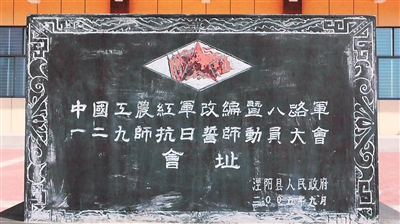 中國工農紅軍改編暨八路軍
一二九師抗日誓師動員大會
會址
涇阳县人民政府
二〇〇五年九月